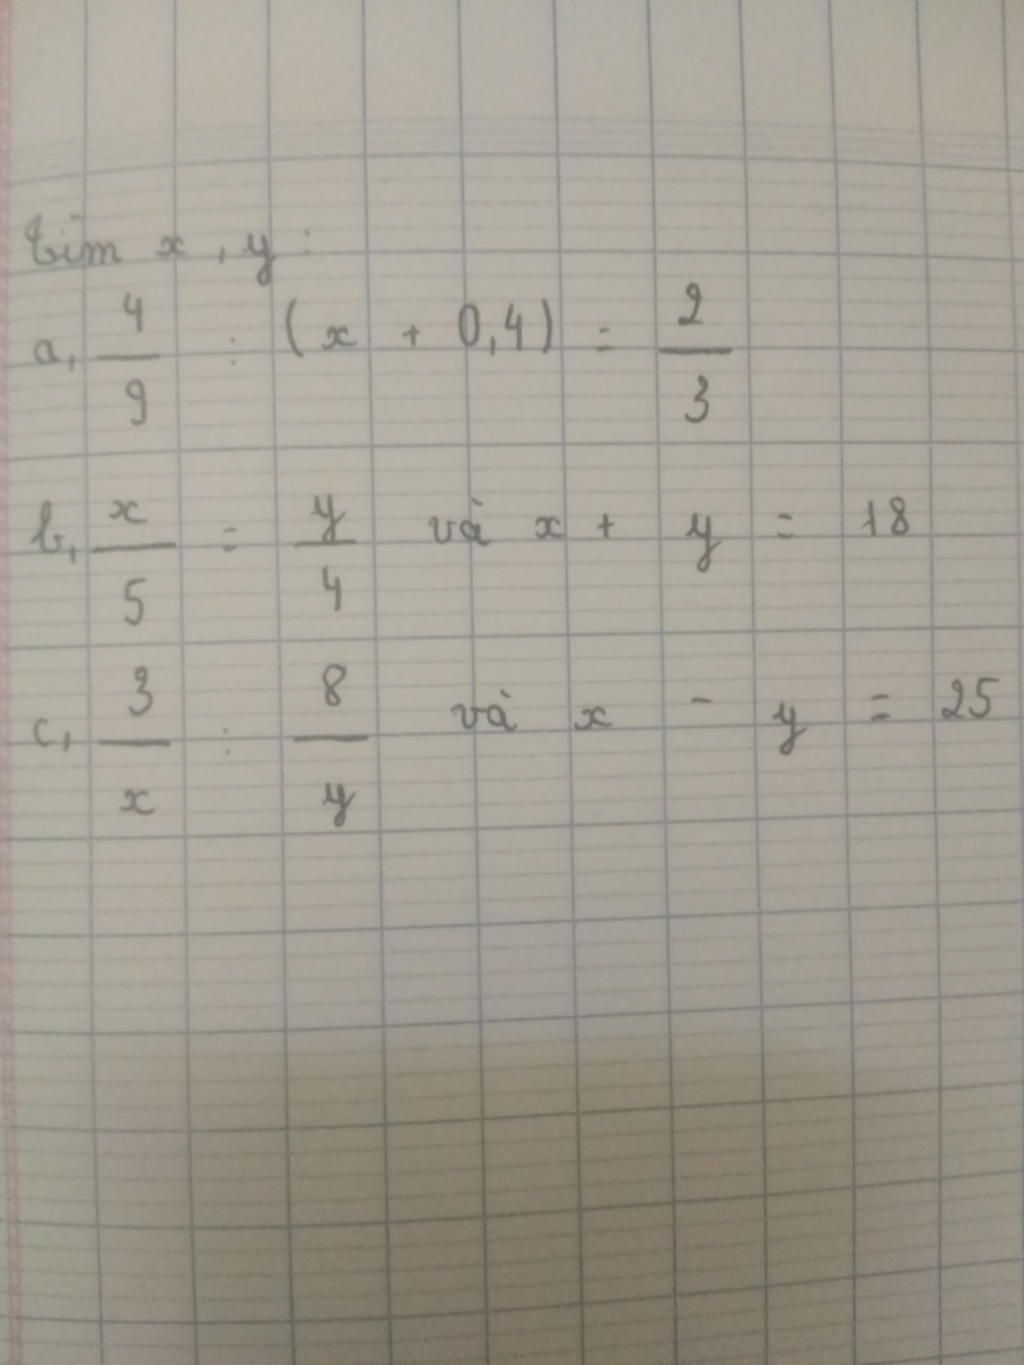 tìm x, y :
a, 4/9 : (x + 0,4) = 2/3
b, x/5 = y/4 và x + y = 18
c, 3/x : 8/y và x - y = 25